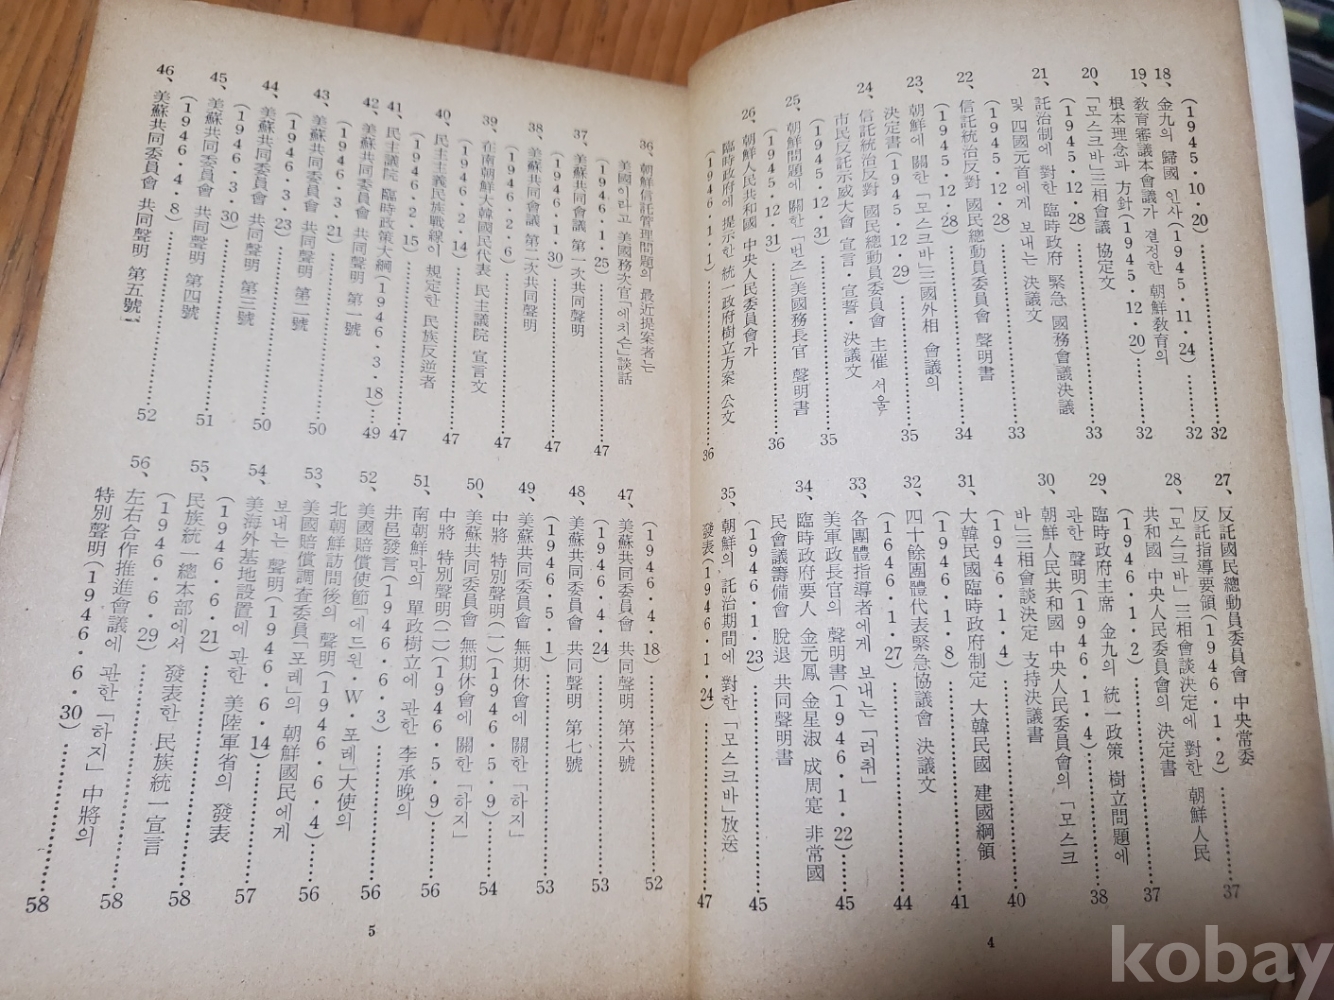 (1945·10·20)……32
18、金九의 歸國 인사(1945·11·24)……32
19、敎育審議本會議가 결정한 朝鮮敎育의
根本理念과 方針(1945·12·20)……32
20、「모스크바」三相會議 協定文
(1945·12·28)……33
21、託治制에 對한 臨時政府 緊急 國務會議決議
및 四國元首에게 보내는 決議文
(1945·12·28)……33
22、信託統治反對 國民總動員委員會 聲明書
(1945·12·28)……34
23、朝鮮에 關한「모스크바」三國外相 會議의
決定書(1945·12·29)……35
24、信託統治反對 國民總動員委員會 主催 서울
市民反託示威大會 宣言·宣誓·決議文
(1945·12·31)……35
25、朝鮮問題에 關한「번즈」美國務長官 聲明書
(1945·12·31)……36
26、朝鮮人民共和國 中央人民委員會가
臨時政府에 提示한 統一政府樹立方案 公文
(1946·1·1)……36
27、反託國民總動員委員會 中央常委
反託指導要領(1946·1·2)……37
28、「모스크바」三相會談決定에 對한 朝鮮人民
共和國 中央人民委員會의 決定書
(1946·1·2)……37
29、臨時政府主席 金九의 統一政策 樹立問題에
관한 聲明(1946·1·4)……38
30、朝鮮人民共和國 中央人民委員會의「모스크
바」三相會談決定 支持決議書
(1946·1·4)……40
31、大韓民國臨時政府制定 大韓民國 建國綱領
(1946·1·8)……41
32、四十餘團體代表緊急協議會 決議文
(1646·1·27)……44
33、各團體指導者에게 보내는「러취」
美軍政長官의 聲明書(1946·1·22)……45
34、臨時政府要人 金元鳳 金星淑 成周寔 非常國
民會議籌備會 脫退 共同聲明書
(1946·1·23)……45
35、朝鮮의 託治期間에 對한「모스크바」放送
發表(1946·1·24)……47
4
36、朝鮮信託管理問題의 最近提案者는
美國이라고 美國務次官「에치슨」談話
(1946·1·25)……47
37、美蘇共同會議 第一次共同聲明
(1946·1·30)……47
38、美蘇共同會議 第二次共同聲明
(1946·2·6)……47
39、在南朝鮮大韓國民代表 民主議院 宣言文
(1946·2·14)……47
40、民主主義民族戰線이 規定한 民族反逆者
(1946·2·15)……47
41、民主議院 臨時政策大綱(1946·3·18)……49
42、美蘇共同委員會 共同聲明 第一號
(1946·3·21)……50
43、美蘇共同委員會 共同聲明 第二號
(1946·3·23)……50
44、美蘇共同委員會 共同聲明 第三號
(1946·3·30)……51
45、美蘇共同委員會 共同聲明 第四號
(1946·4·8)……52
46、美蘇共同委員會 共同聲明 第五號
(1946·4·18)……52
47、美蘇共同委員會 共同聲明 第六號
(1946·4·24)……53
48、美蘇共同委員會 共同聲明 第七號
(1946·5·1)……53
49、美蘇共同委員會 無期休會에 關한「하지」
中將 特別聲明(一)(1946·5·9)……54
50、美蘇共同委員會 無期休會에 關한「하지」
中將 特別聲明(二)(1946·5·9)……56
51、南朝鮮만의 單政樹立에 관한 李承晩의
井邑發言(1946·6·3)……56
52、美國賠償使節「에드윈·W·포레」大使의
北朝鮮訪問後의 聲明(1946·6·4)……56
53、美國賠償調査委員「포레」의 朝鮮國民에게
보내는 聲明(1946·6·14)……57
54、美海外基地設置에 관한 美陸軍省의 發表
(1946·6·21)……58
55、民族統一總本部에서 發表한 民族統一宣言
(1946·6·29)……58
56、左右合作推進會議에 관한「하지」中將의
特別聲明(1946·6·30)……58
5
kobay